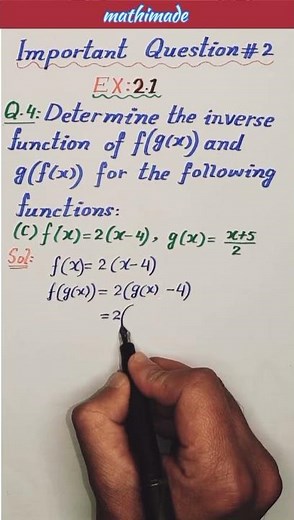 mathimade
Important Question#2
EX:2.1
Q.4: Determine the inverse
function of f(g(x)) and
g(f(x)) for the following
functions:
(C) f(x)=2(x-4), g(x)= x+5/2
Sol: f(x)= 2(x-4)
f(g(x))= 2(g(x) -4)
=2(